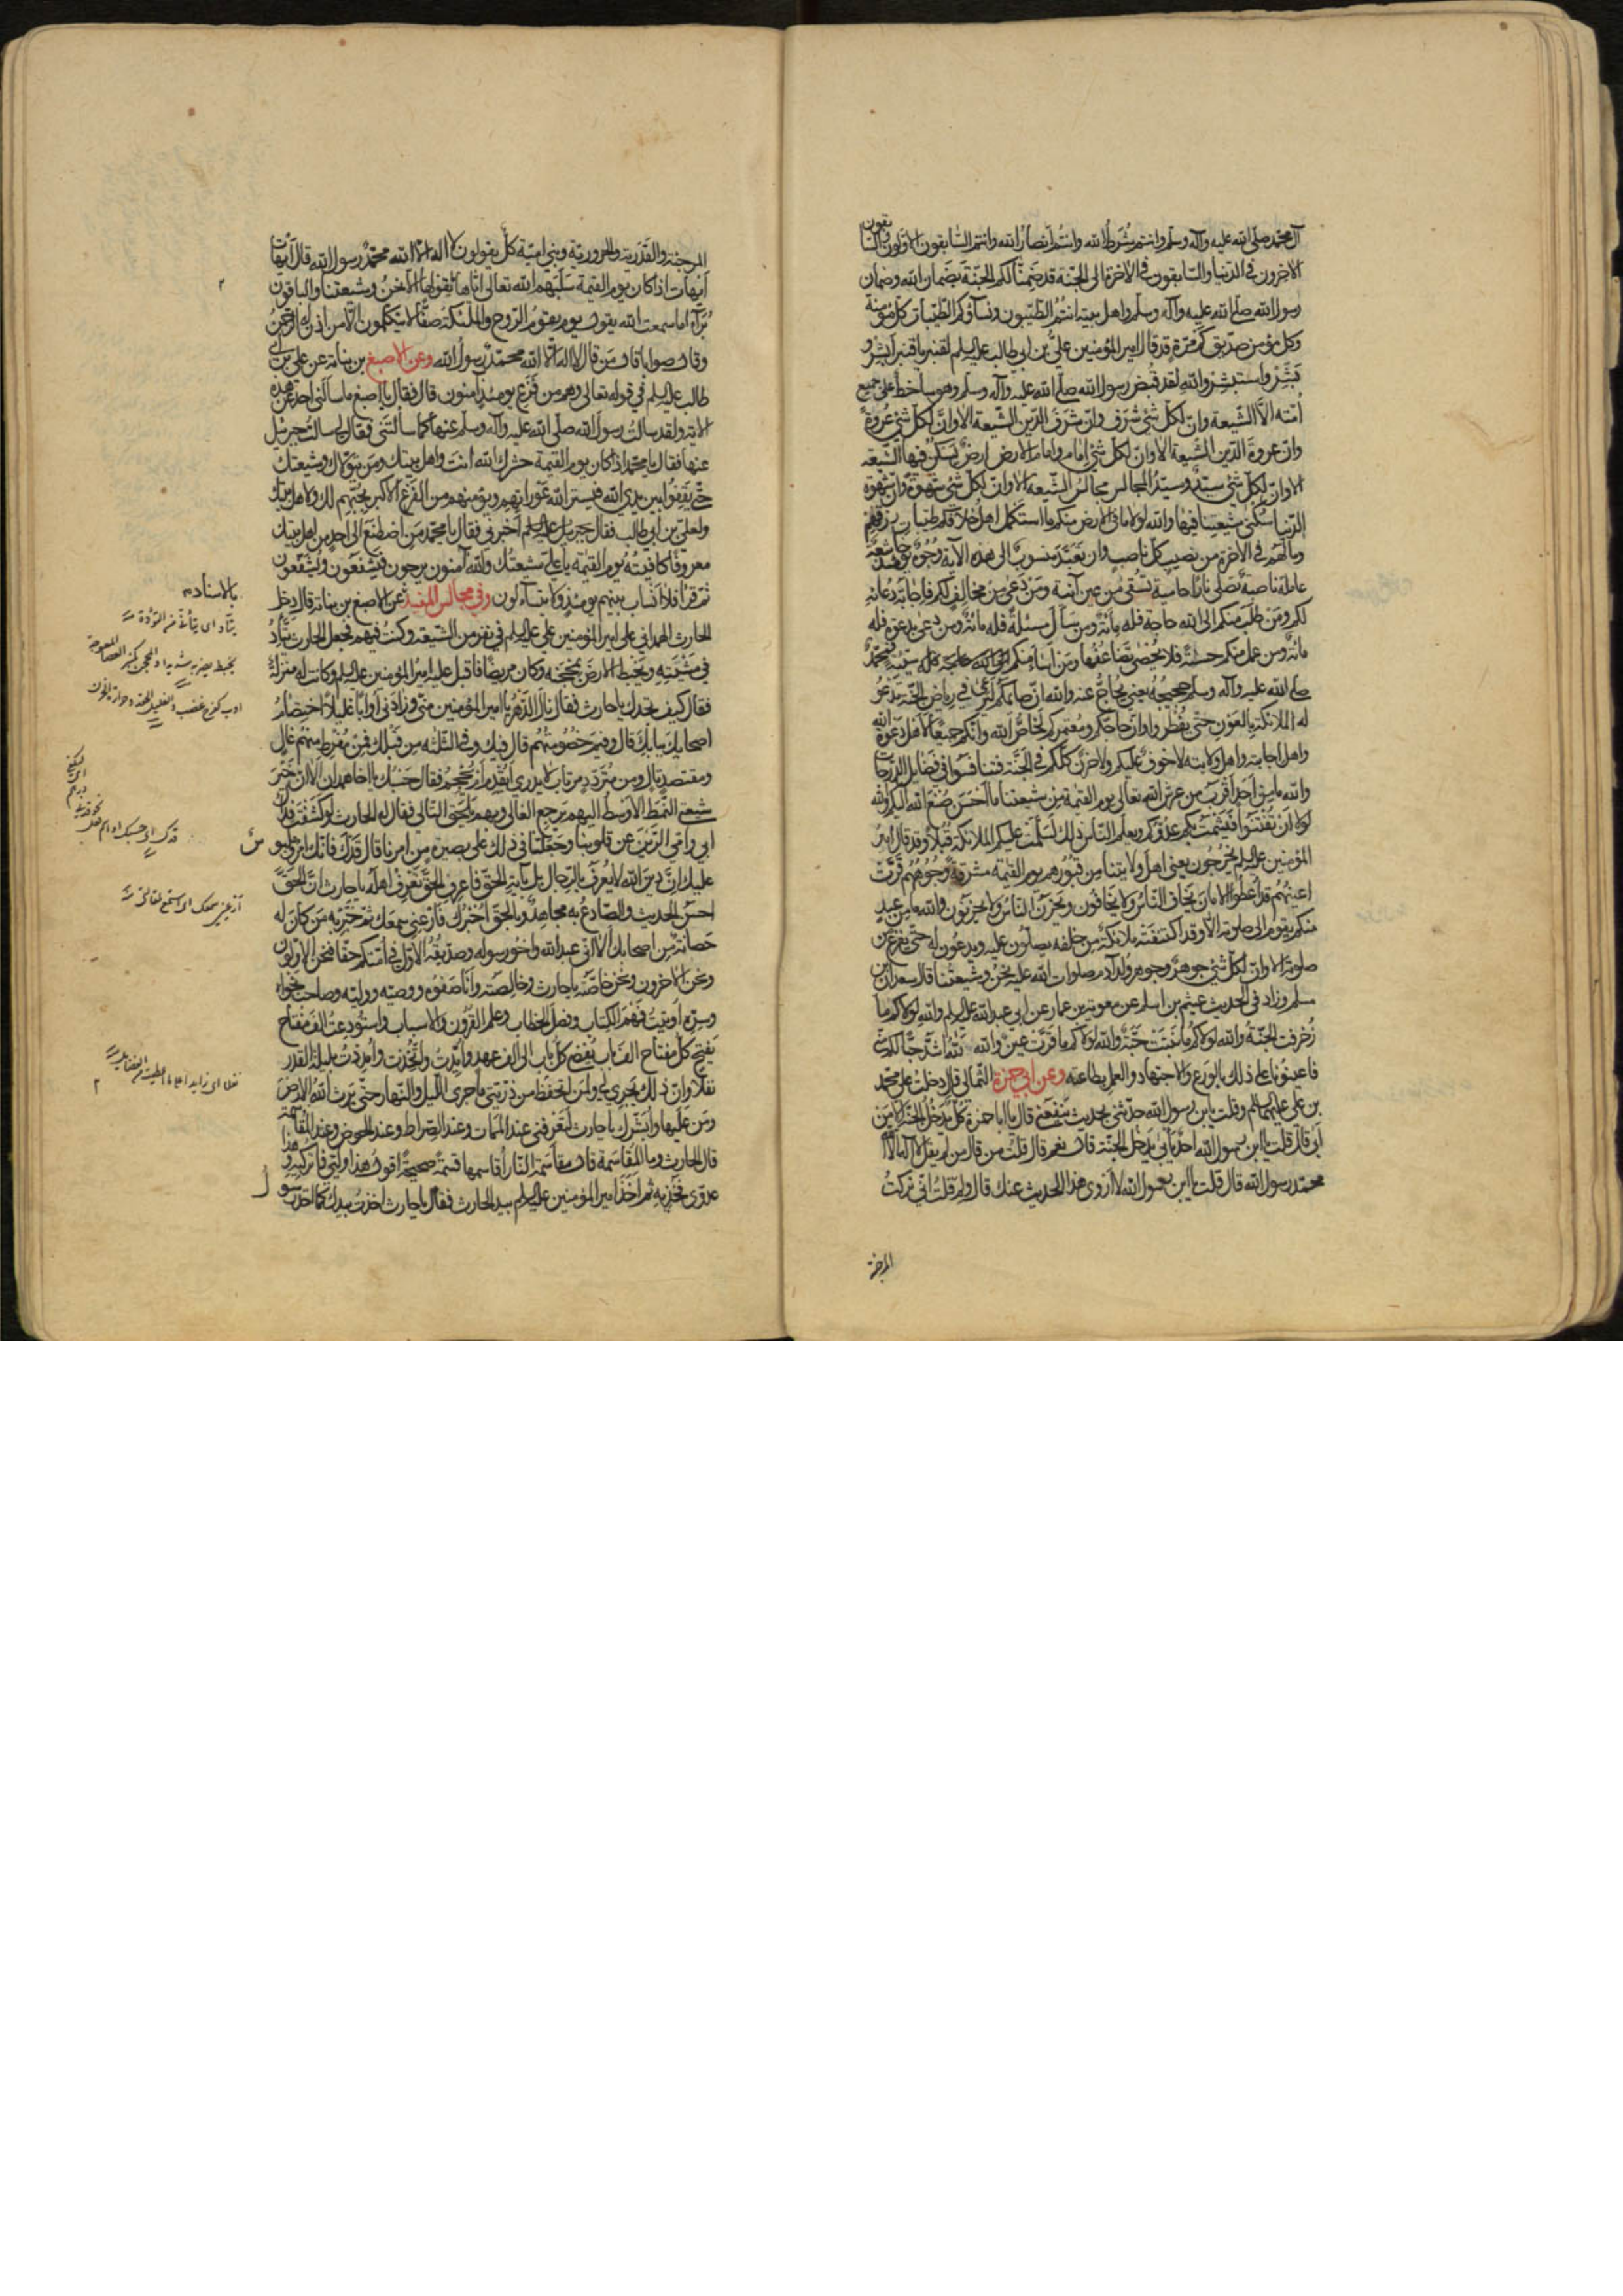 آل محمد صلى الله عليه وآله وسلم وانتم شرط الله وانتم انصار الله وانتم السابقون الاولون والسابقون
الاخرون في الدنيا والسابقون في الاخرة الى الجنة قد ضمنا لكم الجنة بضمان الله وضمان
رسول الله صلى الله عليه وآله وسلم واهل بيته انتم الطيبون ونساؤكم الطيبات كل مؤمنة
وكل مؤمن صديق كم مرة قد قال امير المؤمنين علي بن ابي طالب عليه السلم لقنبر يا قنبر ابشر و
بشر واستبشر والله لقد قبض رسول الله صلى الله عليه وآله وسلم وهو ساخط على جميع
امته الا الشيعة وان لكل شئ شرف وان شرف الدين الشيعة الا وان لكل شئ عروة
وان عروة الدين الشيعة الا وان لكل شئ امام وامام الارض ارض تسكن فيها الشيعة
الا وان لكل شئ سيد وسيد المجالس مجالس الشيعة الا وان لكل شئ شهوة وان شهوة
الدنيا سكنى شيعتنا فيها والله لولا ما في الارض منكم ما استكمل اهل خلافكم طيبات رزقهم
وما لهم في الاخرة من نصيب كل ناصب وان تعبد منسوب الى هذه الآية وجوه يومئذ خاشعة
عاملة ناصبة تصلى نارا حامية تسقى من عين آنية ومن دعى من مخالف لكم فاجابة دعائه
لكم ومن طلب منكم الى الله حاجة فله مائة ومن سأل مسئلة فله مائة ومن دعى بدعوة فله
مائة ومن عمل منكم حسنة فلا يحصى تضاعفها ومن اساء منكم سيئة فمحمد
صلى الله عليه وآله وسلم حجيجه يعني يحاج عنه والله ان صائمكم ليرعى في رياض الجنة تدعو
له الملائكة بالعون حتى يفطر وان حاجكم ومعتمركم لخاص الله وانكم جميعا لاهل دعوة الله
واهل اجابته واهل ولايته لا خوف عليكم ولا حزن كلكم في الجنة فتنافسوا في فضايل الدرجات
والله ما من احد اقرب من عرش الله تعالى يوم القيمة من شيعتنا ما احسن صنع الله اليكم والله
لولا ان تفتنوا فيشمت بكم عدوكم ويعلم الناس ذلك لسلمت عليكم الملائكة قبلا وقد قال امير
المؤمنين عليه السلم يخرجون يعني اهل ولايتنا من قبورهم يوم القيمة مشرقة وجوههم قرت
اعينهم قد اعطوا الامان يخاف الناس ولا يخافون ويحزن الناس ولا يحزنون والله ما من عبد
منكم يقوم الى صلوته الا وقد اكتنفته ملائكة من خلفه يصلون عليه ويدعون له حتى يفرغ من
صلوته الا وان لكل شئ جوهر وجوهر ولد آدم صلوات الله عليه نحن وشيعتنا قال سعدان بن
مسلم وزاد في الحديث عيثم بن اسلم عن معوية بن عمار عن ابي عبد الله عليه السلم والله لولاكم ما
زخرفت الجنة والله لولاكم ما نبتت حبة والله لولاكم ما قرت عين والله لله اشد حبا لكم مني
فاعينونا على ذلك بالورع والاجتهاد والعمل بطاعته وعن ابي حمزة الثمالي قال دخلت على محمد
بن علي عليهما السلم وقلت يا بن رسول الله حدثني بحديث ينفعني قال يا ابا حمزة كل يدخل الجنة الا من
ابى قال قلت يا ابن رسول الله احد يأبى يدخل الجنة قال نعم قال قلت من قال من لم يقل لا اله الا الله
محمد رسول الله قال قلت يا ابن رسول الله لا اروي هذا الحديث عنك قال ولم قلت اني تركت
المرجئة
المرجئة والقدرية والحرورية وبني امية كل يقولون لا اله الا الله محمد رسول الله قال ايهات
ايهات اذا كان يوم القيمة سلبهم الله تعالى اياها لا يقولها الا نحن وشيعتنا والباقون
براء اما سمعت الله يقول يوم يقوم الروح والملئكة صفا لا يتكلمون الا من اذن له الرحمن
وقال صوابا قال من قال لا اله الا الله محمد رسول الله وعن الاصبغ بن نباتة عن علي بن ابي
طالب عليه السلم في قوله تعالى وهم من فزع يومئذ آمنون قال فقال يا اصبغ ما سألني احد عن هذه
الآية ولقد سالت رسول الله صلى الله عليه وآله وسلم عنها كما سألتني فقال لي سالت جبرئيل
عنها فقال يا محمد اذا كان يوم القيمة حشرك الله انت واهل بيتك ومن يتولاك وشيعتك
حتى يقفوا بين يدي الله فيستر الله عوراتهم ويؤمنهم من الفزع الاكبر بحبهم لك ولاهل بيتك
ولعلي بن ابي طالب فقال جبرئيل عليه السلم اخبرني فقال يا محمد من اصطنع الى احد من اهل بيتك
معروفا كافيته يوم القيمة يا علي شيعتك والله آمنون يرجون فيشفعون ويشفعون
ثم قرأ فلا انساب بينهم يومئذ ولا يتساءلون وفي مجالس المفيد عن الاصبغ بن نباتة قال دخل
الحارث الهمداني على امير المؤمنين علي عليه السلم في نفر من الشيعة وكنت فيهم فجعل الحارث يتأد
في مشيته ويخبط الارض بمحجنه وكان مريضا فاقبل عليه امير المؤمنين عليه السلم وكانت له منه منزلة
فقال كيف تجدك يا حارث فقال نال الدهر يا امير المؤمنين مني وزادني اوابا غليلا اختصام
اصحابك ببابك قال وفيم خصومتهم قال فيك وفي الثلثة من قبلك فمن مفرط منهم غال
ومقتصد تال ومن متردد مرتاب لا يدري ايقدم ام يحجم فقال حسبك يا اخا همدان الا ان خير
شيعتي النمط الاوسط اليهم يرجع الغالي وبهم يلحق التالي فقال له الحارث لو كشفت فداك
ابي وامي الرين عن قلوبنا وجعلتنا في ذلك على بصيرة من امرنا قال قدك فانك امرؤ ملبو س
عليك ان دين الله لا يعرف بالرجال بل بآية الحق فاعرف الحق تعرف اهله يا حارث ان الحق
احسن الحديث والصادع به مجاهد وبالحق اخبرك فارعني سمعك ثم خبر به من كان له
حصانة من اصحابك الا اني عبد الله واخو رسوله وصديقه الاول في امتكم حقا فنحن الاولون
ونحن الاخرون ونحن خاصته يا حارث وخالصته وانا صفوه ووصيه ووليه وصاحب نجواه
وسره اوتيت فهم الكتاب وفصل الخطاب وعلم القرون والاسباب واستودعت الف مفتاح
يفتح كل مفتاح الف باب يفضي كل باب الى الف عهد وايدت واتخذت وامددت بليلة القدر
نفلا وان ذلك يجري لي ولمن تحفظ من ذريتي ما جرى الليل والنهار حتى يرث الله الارض
ومن عليها وابشرك يا حارث لتعرفني عند الممات وعند الصراط وعند الحوض وعند المقاسمة
قال الحارث وما المقاسمة قال مقاسمة النار اقاسمها قسمة صحيحة اقول هذا وليي فاتركيه وهذا
عدوي فخذيه ثم اخذ امير المؤمنين عليه السلم بيد الحارث فقال يا حارث اخذت بيدك كما اخذ رسو ل
بالاسناد م